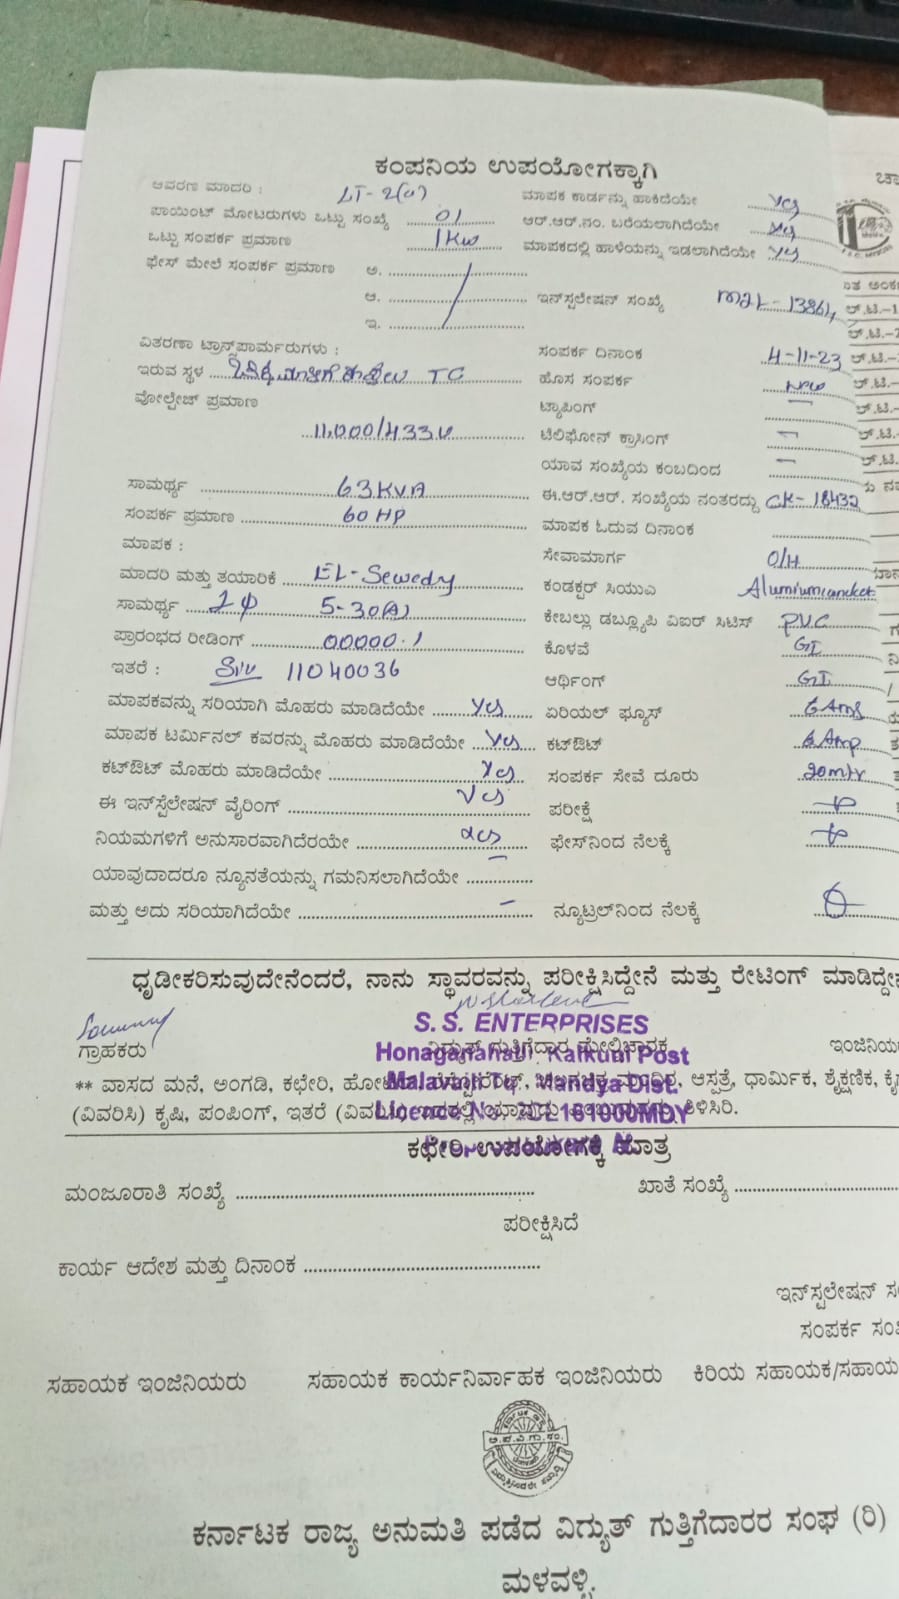 ಕಂಪನಿಯ ಉಪಯೋಗಕ್ಕಾಗಿ
ಆವರಣ ಮಾದರಿ : LT-2(a) ಮಾಪಕ ಕಾರ್ಡನ್ನು ಹಾಕಿದೆಯೇ yes
ಪಾಯಿಂಟ್ ಮೋಟರುಗಳು ಒಟ್ಟು ಸಂಖ್ಯೆ 01 ಆರ್.ಆರ್.ನಂ. ಬರೆಯಲಾಗಿದೆಯೇ yes
ಒಟ್ಟು ಸಂಪರ್ಕ ಪ್ರಮಾಣ 1KW ಮಾಪಕದಲ್ಲಿ ಹಾಳೆಯನ್ನು ಇಡಲಾಗಿದೆಯೇ yes
ಫೇಸ್ ಮೇಲೆ ಸಂಪರ್ಕ ಪ್ರಮಾಣ ಅ.
ಆ. ಇನ್‌ಸ್ಪಲೇಷನ್ ಸಂಖ್ಯೆ
ಇ.
ವಿತರಣಾ ಟ್ರಾನ್ಸ್‌ಪಾರ್ಮರುಗಳು : ಸಂಪರ್ಕ ದಿನಾಂಕ 4-11-23
ಇರುವ ಸ್ಥಳ TC ಹೊಸ ಸಂಪರ್ಕ new
ವೋಲ್ಟೇಜ್ ಪ್ರಮಾಣ ಟ್ಯಾಪಿಂಗ್ –
11,000/433V ಟೆಲಿಫೋನ್ ಕ್ರಾಸಿಂಗ್ –
ಯಾವ ಸಂಖ್ಯೆಯ ಕಂಬದಿಂದ –
ಸಾಮರ್ಥ್ಯ 63KVA ಈ.ಆರ್.ಆರ್. ಸಂಖ್ಯೆಯ ನಂತರದ್ದು CK-18432
ಸಂಪರ್ಕ ಪ್ರಮಾಣ 60 HP ಮಾಪಕ ಓದುವ ದಿನಾಂಕ
ಮಾಪಕ : ಸೇವಾಮಾರ್ಗ O/H
ಮಾದರಿ ಮತ್ತು ತಯಾರಿಕೆ EL-Sewedy ಕಂಡಕ್ಟರ್ ಸಿಯುಎ
ಸಾಮರ್ಥ್ಯ 1Φ 5-30(A) ಕೇಬಲ್ಲು ಡಬ್ಲ್ಯೂಪಿ ವಿಐರ್ ಸಿಟಿಸ್ PVC
ಪ್ರಾರಂಭದ ರೀಡಿಂಗ್ 00000.1 ಕೊಳವೆ GI
ಇತರೆ : 11040036 ಆರ್ಥಿಂಗ್ GI
ಮಾಪಕವನ್ನು ಸರಿಯಾಗಿ ಮೊಹರು ಮಾಡಿದೆಯೇ yes ಏರಿಯಲ್ ಫ್ಯೂಸ್
ಮಾಪಕ ಟರ್ಮಿನಲ್ ಕವರನ್ನು ಮೊಹರು ಮಾಡಿದೆಯೇ yes ಕಟ್‌ಔಟ್ 6 Amp
ಕಟ್‌ಔಟ್ ಮೊಹರು ಮಾಡಿದೆಯೇ yes ಸಂಪರ್ಕ ಸೇವೆ ದೂರು 20mtr
ಈ ಇನ್‌ಸ್ಪೆಲೇಷನ್ ವೈರಿಂಗ್ yes ಪರೀಕ್ಷೆ
ನಿಯಮಗಳಿಗೆ ಅನುಸಾರವಾಗಿದೆರಯೇ yes ಫೇಸ್‌ನಿಂದ ನೆಲಕ್ಕೆ
ಯಾವುದಾದರೂ ನ್ಯೂನತೆಯನ್ನು ಗಮನಿಸಲಾಗಿದೆಯೇ –
ಮತ್ತು ಅದು ಸರಿಯಾಗಿದೆಯೇ – ನ್ಯೂಟ್ರಲ್‌ನಿಂದ ನೆಲಕ್ಕೆ
ಧೃಡೀಕರಿಸುವುದೇನೆಂದರೆ, ನಾನು ಸ್ಥಾವರವನ್ನು ಪರೀಕ್ಷಿಸಿದ್ದೇನೆ ಮತ್ತು ರೇಟಿಂಗ್ ಮಾಡಿದ್ದೇನೆ
S. S. ENTERPRISES
ಗ್ರಾಹಕರು ವಿದ್ಯುತ್ ಗುತ್ತಿಗೆದಾರ ಮೇಲ್ವಿಚಾರಕ ಇಂಜಿನಿಯ
Honaganahalli Kalkuni Post
** ವಾಸದ ಮನೆ, ಅಂಗಡಿ, ಕಛೇರಿ, ಆಸ್ಪತ್ರೆ, ಧಾರ್ಮಿಕ, ಶೈಕ್ಷಣಿಕ,
Malavalli Tq. Mandya Dist.
(ವಿವರಿಸಿ) ಕೃಷಿ, ಪಂಪಿಂಗ್, ಇತರೆ ತಿಳಿಸಿರಿ.
ಕಛೇರಿ ಉಪಯೋಗಕ್ಕೆ ಮಾತ್ರ
ಮಂಜೂರಾತಿ ಸಂಖ್ಯೆ ಖಾತೆ ಸಂಖ್ಯೆ
ಪರೀಕ್ಷಿಸಿದೆ
ಕಾರ್ಯ ಆದೇಶ ಮತ್ತು ದಿನಾಂಕ
ಇನ್‌ಸ್ಪಲೇಷನ್ ಸಂ
ಸಂಪರ್ಕ ಸಂ
ಸಹಾಯಕ ಇಂಜಿನಿಯರು ಸಹಾಯಕ ಕಾರ್ಯನಿರ್ವಾಹಕ ಇಂಜಿನಿಯರು ಕಿರಿಯ ಸಹಾಯಕ/ಸಹಾಯ
ಕರ್ನಾಟಕ ರಾಜ್ಯ ಅನುಮತಿ ಪಡೆದ ವಿದ್ಯುತ್ ಗುತ್ತಿಗೆದಾರರ ಸಂಘ (ರಿ)
ಮಳವಳ್ಳಿ.